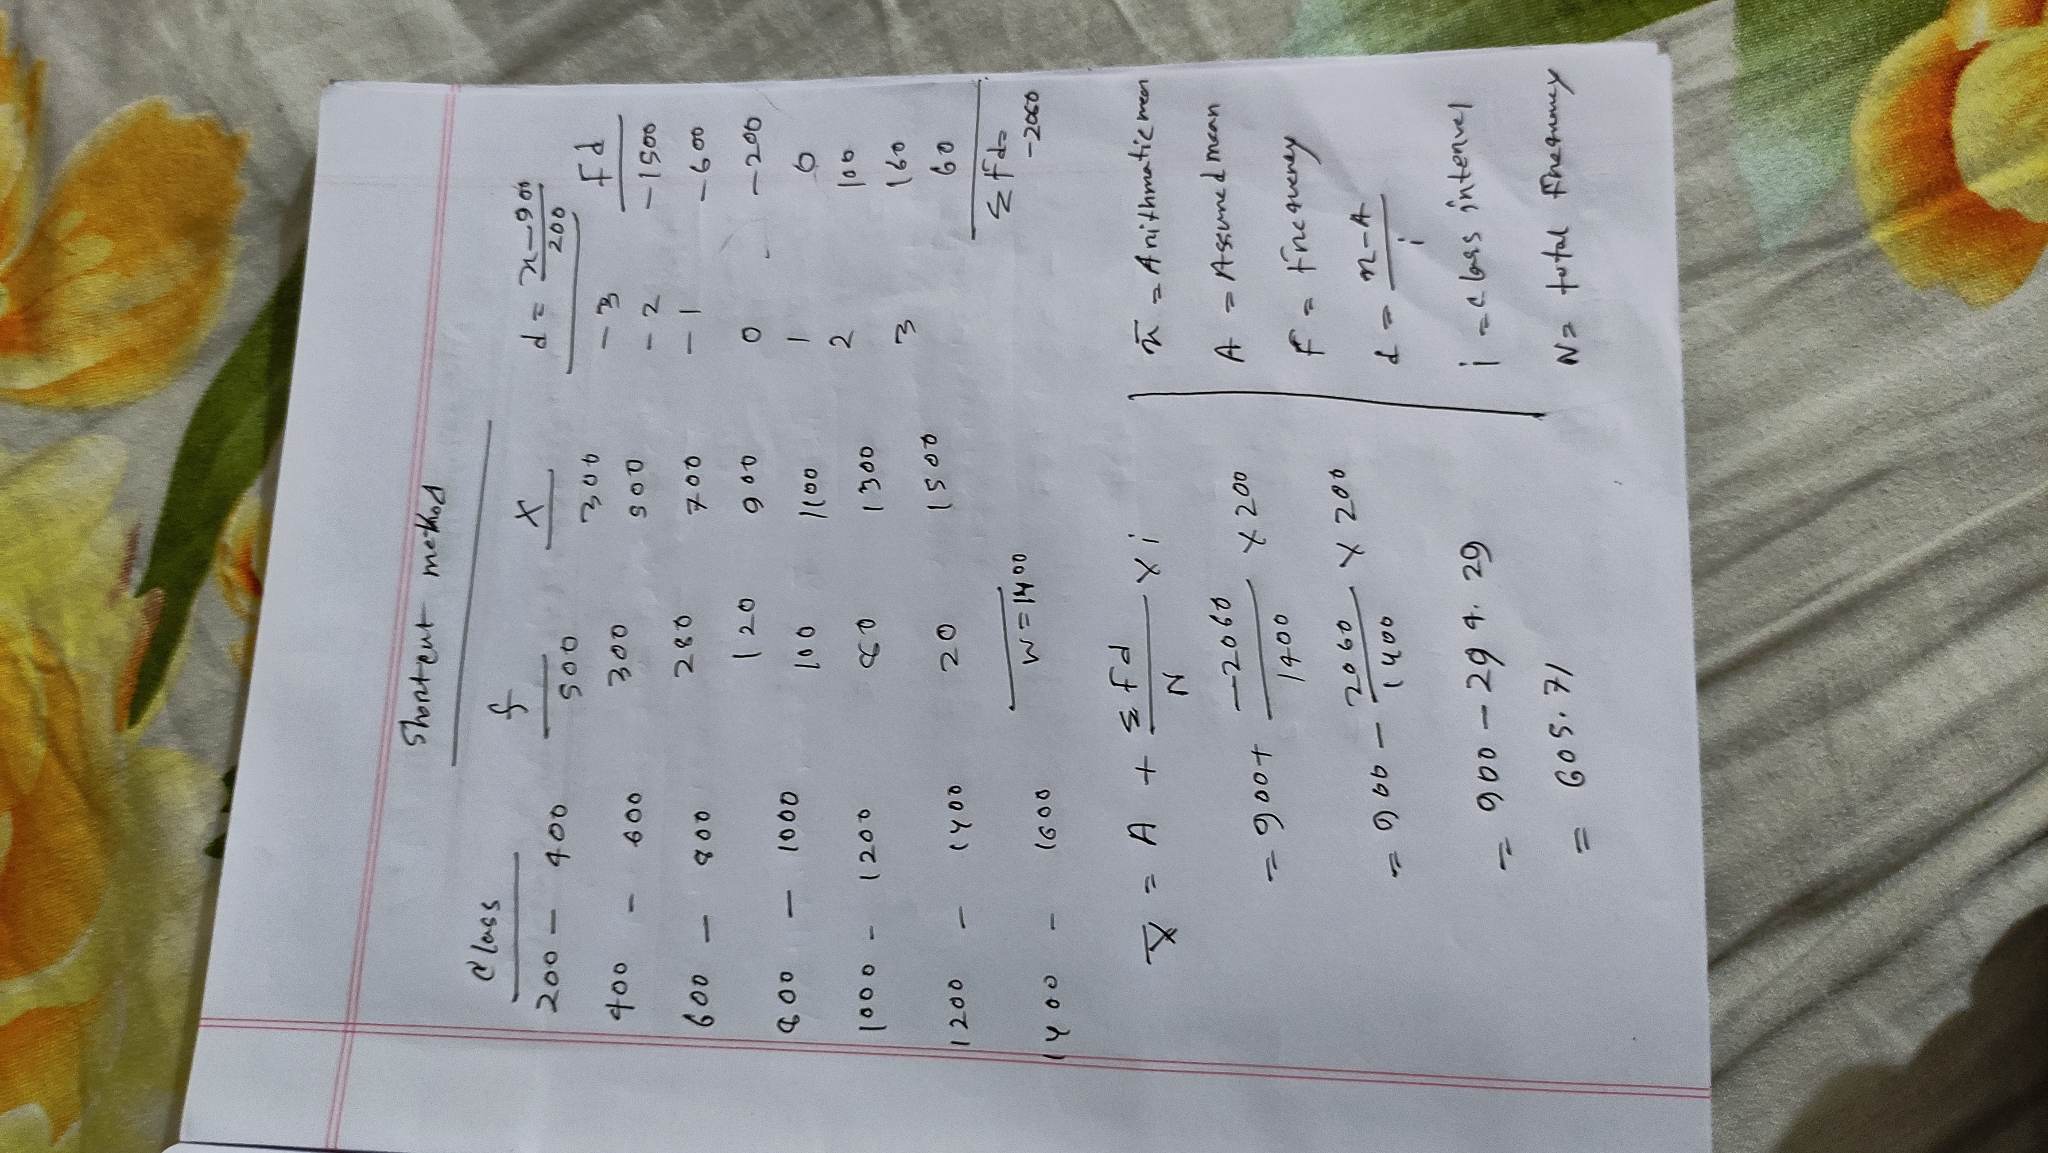 Shortcut method
Class f X d = x-900/200 fd
200 - 400 500 300 -3 -1500
400 - 600 300 500 -2 -600
600 - 800 280 700 -1 -200
800 - 1000 120 900 0 0
1000 - 1200 100 1100 1 100
1200 - 1400 80 1300 2 160
1400 - 1600 20 1500 3 60
N = 1400 Σfd = -2060
X̄ = A + Σfd/N × i
= 900 + -2060/1400 × 200
= 900 - 2060/1400 × 200
= 900 - 294.29
= 605.71
x̄ = Arithmatic mean
A = Assumed mean
F = Frequency
d = x-A/i
i = class interval
N = total frequency